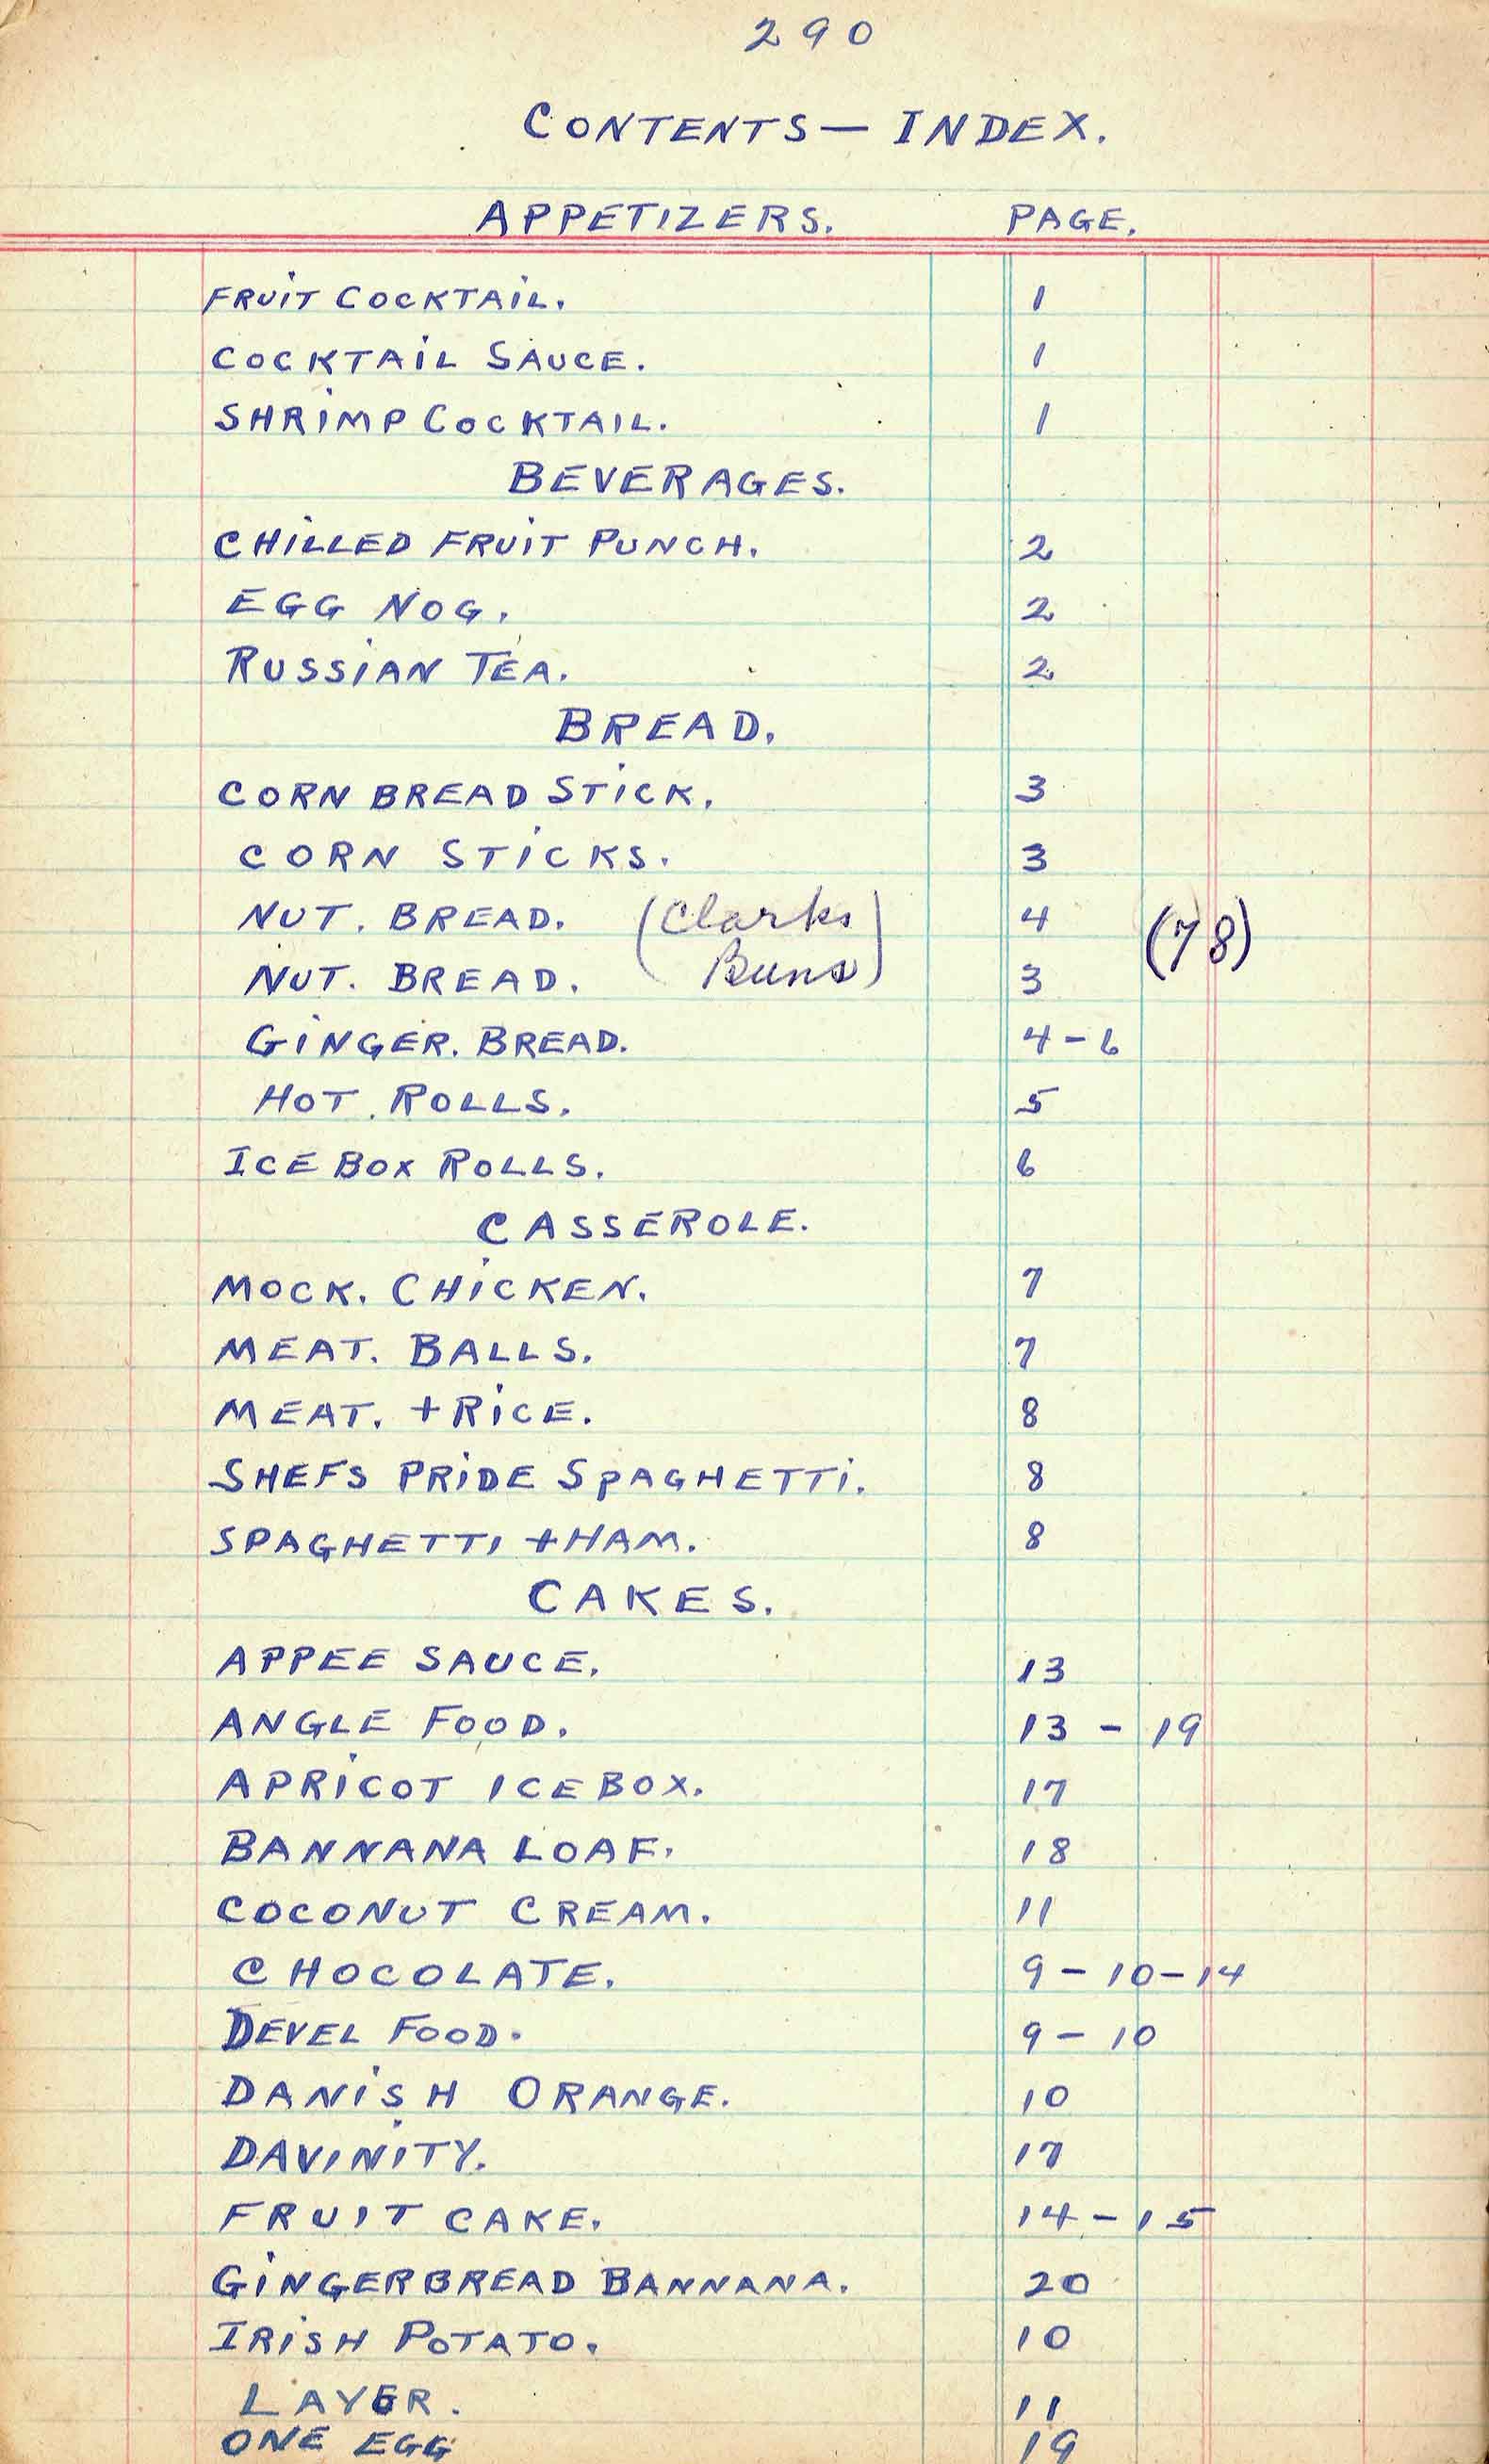 290
CONTENTS — INDEX.
APPETIZERS. PAGE.
FRUIT COCKTAIL. 1
COCKTAIL SAUCE. 1
SHRIMP COCKTAIL. 1
BEVERAGES.
CHILLED FRUIT PUNCH. 2
EGG NOG. 2
RUSSIAN TEA. 2
BREAD.
CORN BREAD STICK. 3
CORN STICKS. 3
NUT. BREAD. (Clarks 4 (78)
NUT. BREAD. Buns) 3
GINGER. BREAD. 4-6
HOT. ROLLS. 5
ICE BOX ROLLS. 6
CASSEROLE.
MOCK. CHICKEN. 7
MEAT. BALLS. 7
MEAT. + RICE. 8
SHEFS PRIDE SPAGHETTI. 8
SPAGHETTI + HAM. 8
CAKES.
APPEE SAUCE. 13
ANGLE FOOD. 13 - 19
APRICOT ICE BOX. 17
BANNANA LOAF. 18
COCONUT CREAM. 11
CHOCOLATE. 9-10-14
DEVEL FOOD. 9-10
DANISH ORANGE. 10
DAVINITY. 17
FRUIT CAKE. 14-15
GINGERBREAD BANNANA. 20
IRISH POTATO. 10
LAYER. 11
ONE EGG 19